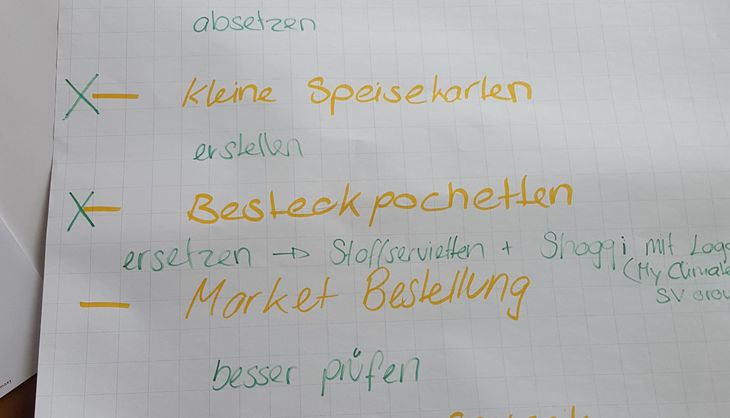 absetzen
X — kleine Speisekarten
erstellen
X — Besteckpochetten
ersetzen → Stoffservietten + Shoggi mit Logo
(My Climate
SV
— Market Bestellung
besser prüfen